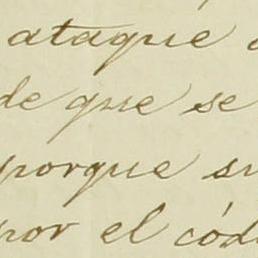 ataque
de que se
porque su
por el códi